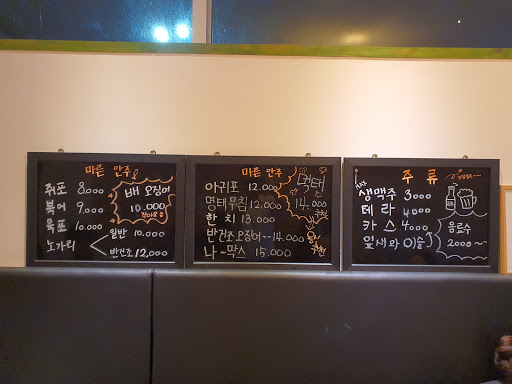 마른 안주
쥐포 8,000
북어 9,000
육포 10,000
노가리 일반 10,000
반건조 12,000
배 오징어
10,000
마른 안주
아귀포 12,000
명태무침 12,000
한치 13,000
반건조 오징어 -- 14,000
나~막스 15,000
먹태
14,000
강추
주류
생맥주 3000
테라 4000
카스 4000
잎새와 이슬
음료수
2000~